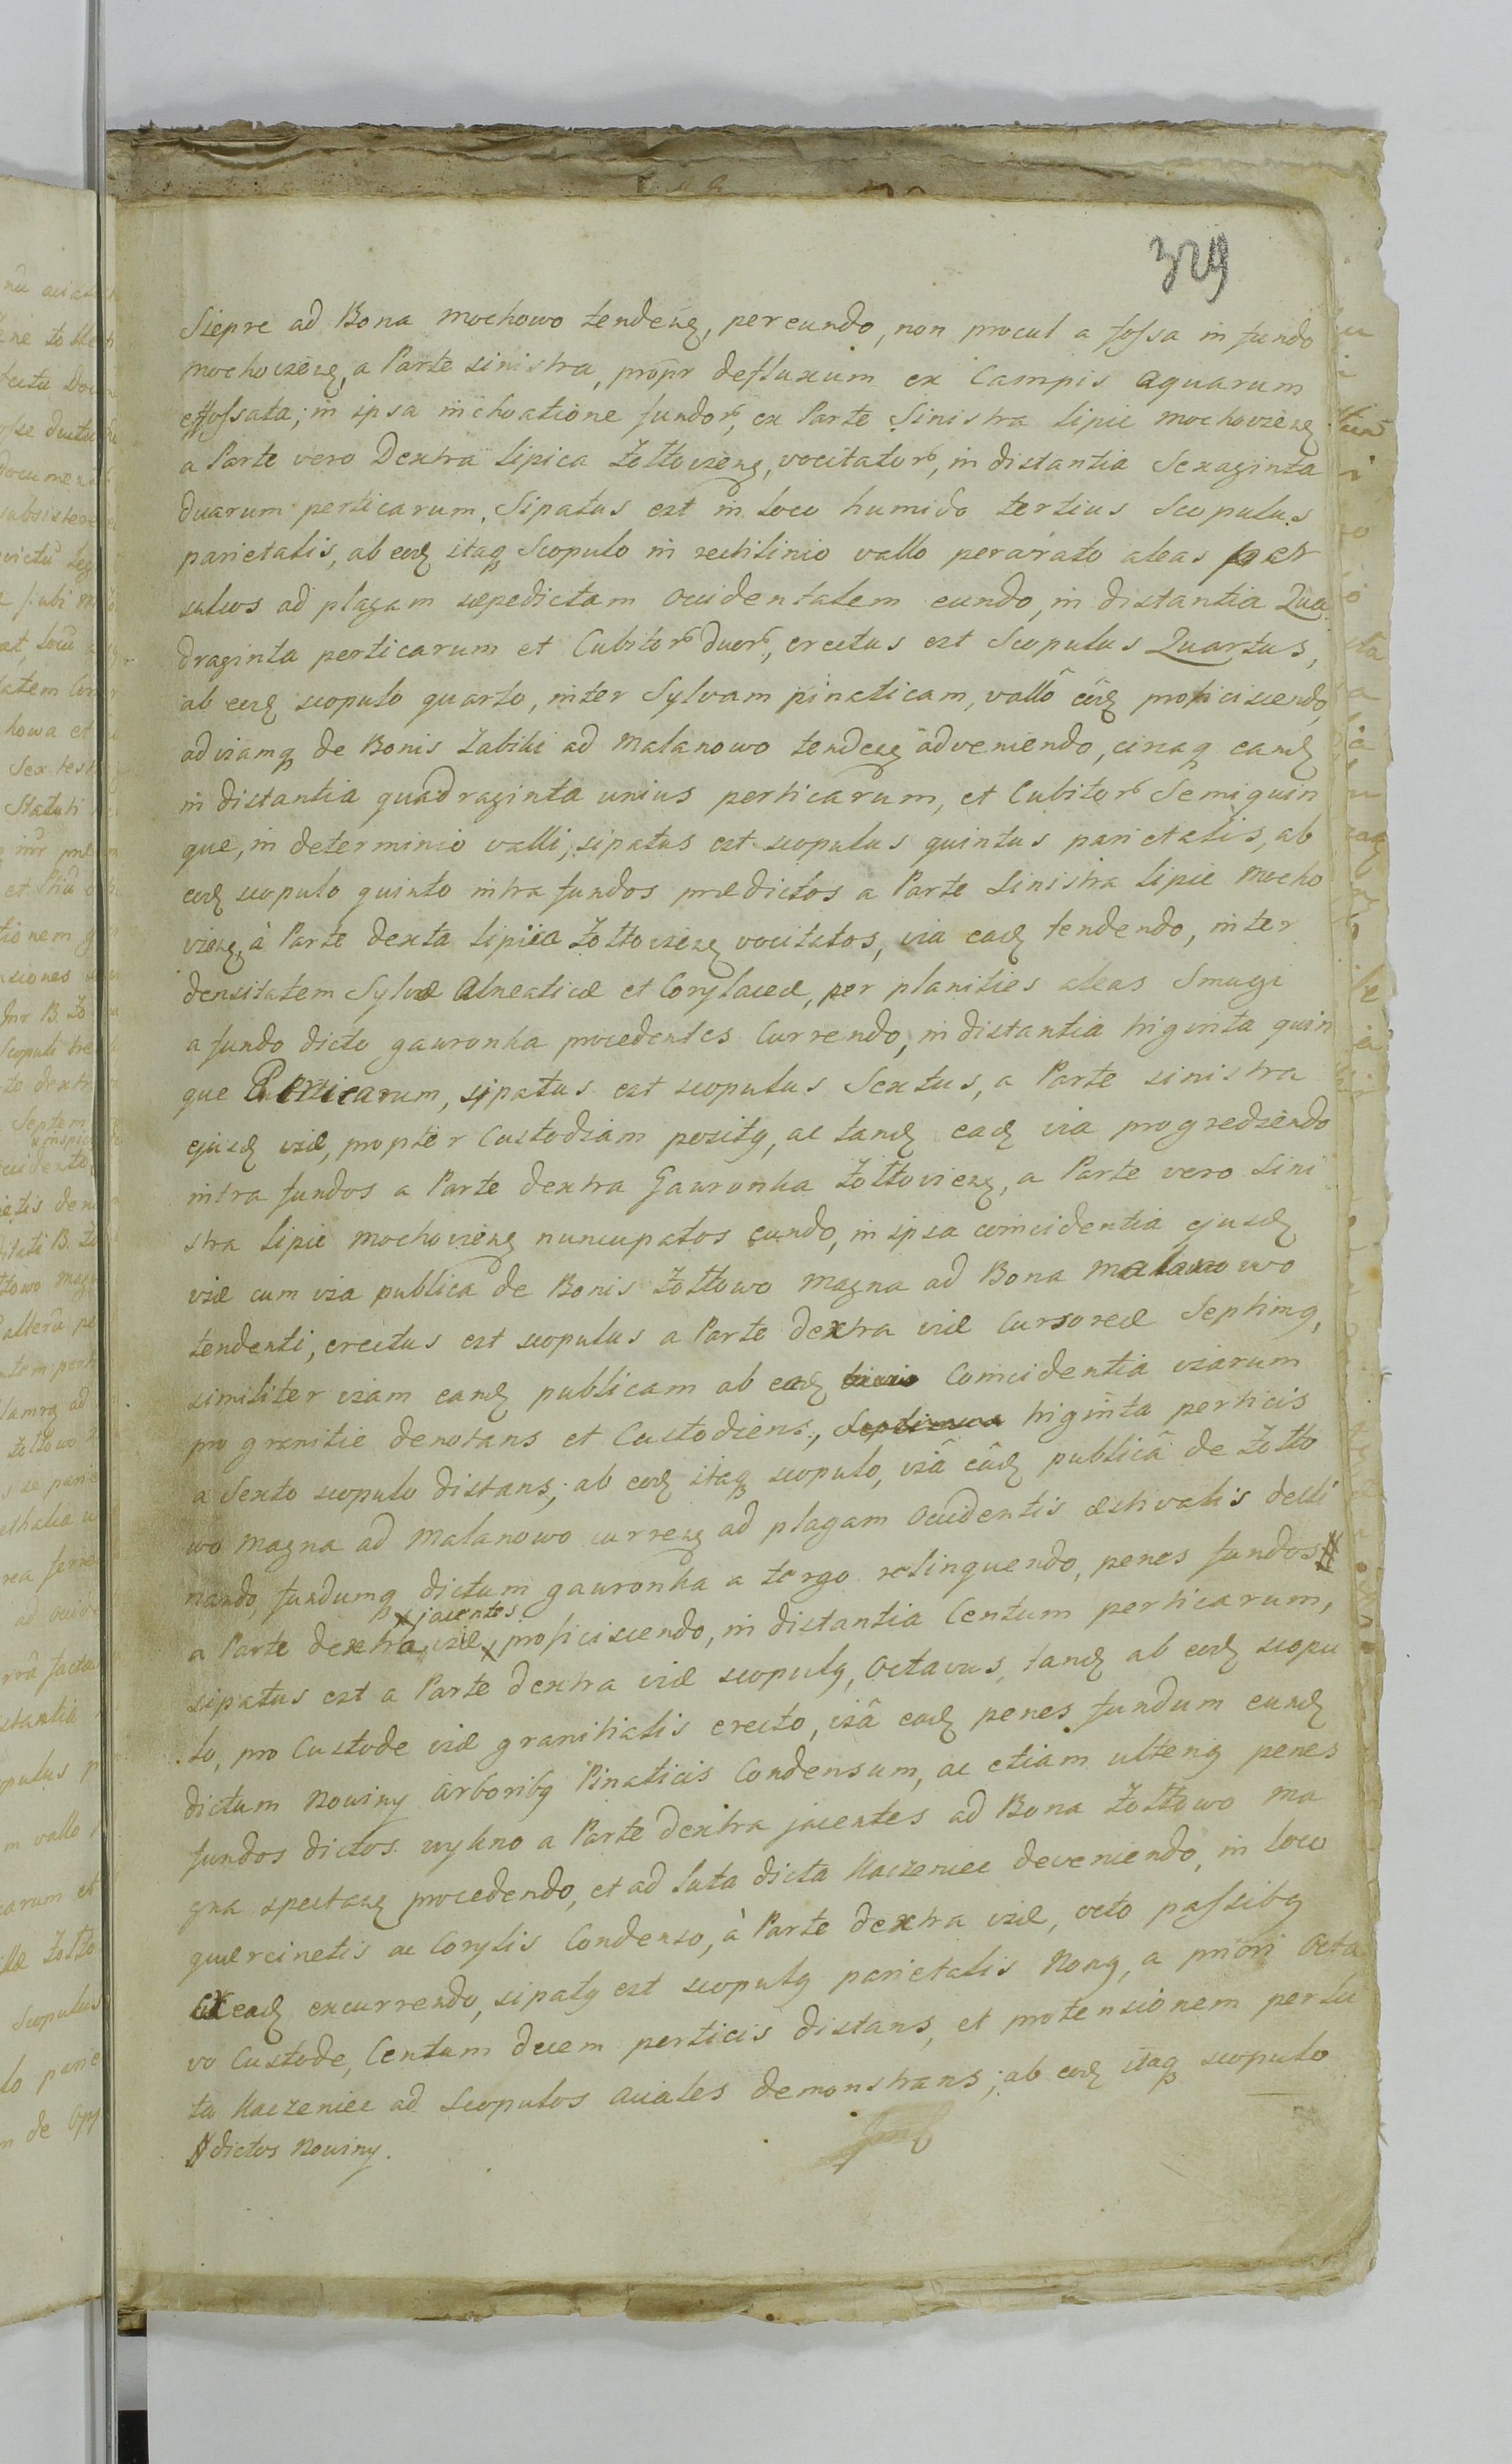 329
Siepre ad Bona Mochowo tendeñ, pereundo, non procul a fossa in fundo
Mochovieñ, a Parte sinistra, propr defluxum ex Campis aquarum
effossata; in ipsa inchoatione fundor, ex Parte Sinistra Lipie Mochovieñ
a Parte vero Dextra Lipica Żółtovieñ, vocitator, in distantia Sexaginta
duarum perticarum, Sipatus est in loco humido tertius Scopulus
parietalis, ab eod itaq Scopulo in rectilinio vallo perarato aleas per
sulcos ad plagam sæpedictam occidentalem eundo, in distantia Qua
draginta perticarum et Cubitor duor, erectus est Scopulus Quartus,
ab eod scopulo quarto, inter Sylvam pineticam, vallô eôd proficiscendo,
ad viamq de Bonis Zabiki ad Malanowo tendeñ adveniendo, circaq eand
in distantia quadraginta unius perticarum, et Cubitor Semiquin
que, in determinio valli, sipatus est scopulus quintus parietalis, ab
eod scopulo quinto intra fundos prædictos a Parte Sinistra Lipie Mocho
vieñ, à Parte dexta Lipiia Żółtovieñ vocitatos, via ead tendendo, inter
densitatem Sylvæ Alneaticæ et Corylaceæ, per planities aleas Smugi
a fundo dicto gawronka procedentes Currendo, in distantia triginta quin
que Perticarum, sipatus est scopulus Sextus, a Parte sinistra
ejusd viæ, propter Custodiam positq, ac tand ead via progrediendo
intra fundos a Parte dextra Gawronka Żółtovieñ, a Parte vero Sini
stra Lipie Mochovieñ nuncupatos eundo, in ipsa coincidentia ejusd
viæ cum via publica de Bonis Żółtowo Magna ad Bona Malanowo
tendenti, erectus est scopulus a Parte dextra viæ Cursoreæ Septimq,
similiter viam eand publicam ab ead Coincidentia viarum
pro granitie denotans et Custodiens, triginta perticis
a Sexto scopulo distans; ab eod itaq scopulo, viâ eâd publicâ de Żółto
wo Magna ad Malanowo curreñ ad plagam Occidentis æstivalis decli
nando, fundumq dictum gawronka a tergo relinquendo, penes fundos #
x jacentes
a Parte dextra viæ x proficiscendo, in distantia Centum perticarum,
sipatus est a Parte dextra viæ scopulq, Octavus, tand ab eod scopu
lo, pro Custode viæ granitialis erecto, viâ ead penes fundum eund
dictum Nowiny arboribq Pineticis Condensum, ac etiam ulteriq penes
fundos dictos wykno a Parte dextra jacentes ad Bona Żółtowo Ma
gna spectañ procedendo, et ad Luta dicta Kaczeniec deveniendo, in loco
quercinetis ac Corylis Condenso, à Parte dextra viæ, octo passibq
ex ead excurrendo, sipatq est scopulq parietalis Nonq, a priori Octa
vo Custode, Centum decem perticis distans, et protensionem per lu
ta Kaczeniec ad Scopulos aciales demonstrans; ab eod itaq scopulo
# dictos Nowiny.